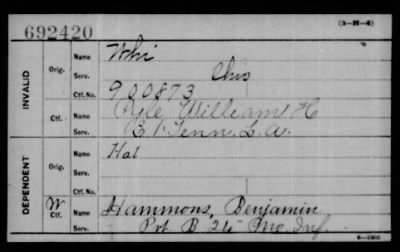 692420
(3-H-4)
INVALID
Orig.
Name Whi
Serv. Chis
Ctf. No. 900873
Ctf.
Name Pyle William H
Serv. E 1' Tenn. L.A.
DEPENDENT
Orig.
Name Hat
Serv.
Ctf. No.
W
Ctf.
Name Hammons, Benjamin
Serv. Pvt. B 24" Mo. Inf.